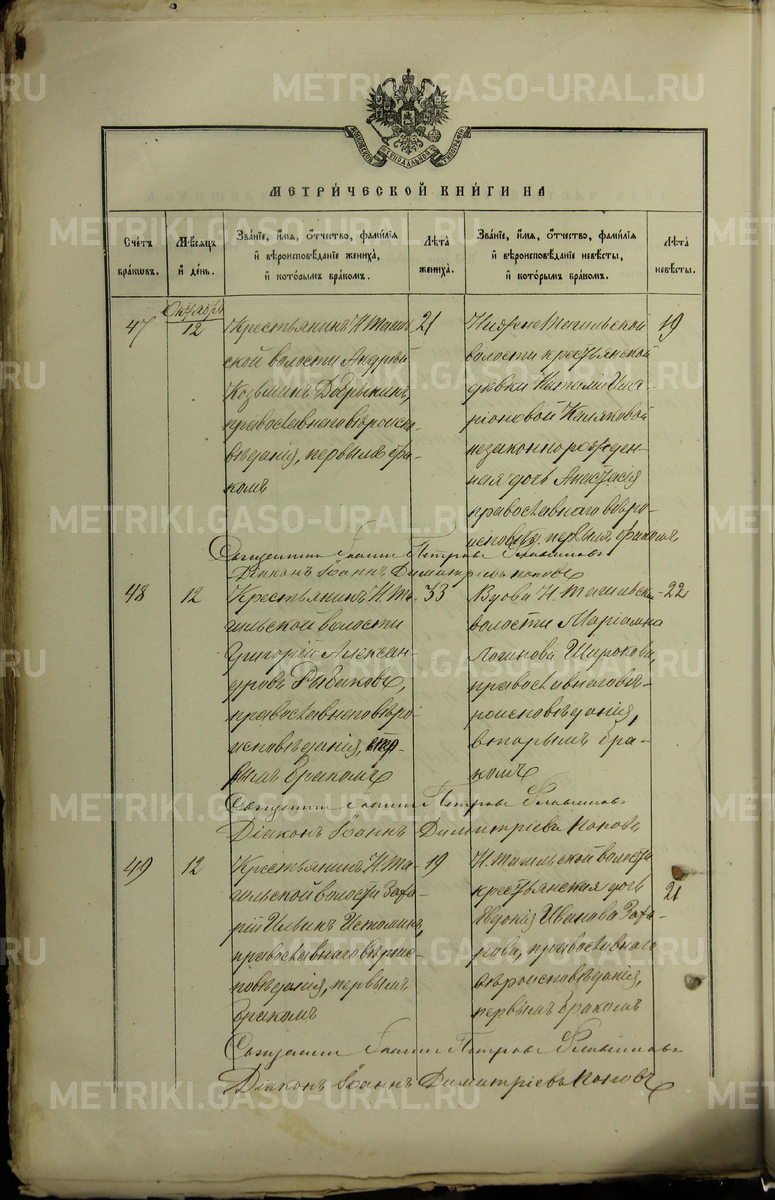 METRIKI.GASO-URAL.RU
МЕТРИ́ЧЕСКОЙ КНИ́ГИ НА
Сче́тъ бра́ковъ.
Мѣ́сяцъ и҆ де́нь.
Зва́нїе, и҆́мя, ѻ҆́тчество, фами́лїя и҆ вѣроисповѣ́данїе жениха̀, и҆ кото́рымъ бра́комъ.
Лѣ́та жениха̀.
Зва́нїе, и҆́мя, ѻ҆́тчество, фами́лїя и҆ вѣроисповѣ́данїе невѣ́сты, и҆ кото́рымъ бра́комъ.
Лѣ́та невѣ́сты.
47
Октябрь
12
Крестьянинъ Н. Тагиль-
ской волости Андрей
Козьминъ Добрынинъ,
православнаго вѣроис-
вѣданія, первымъ бра-
комъ
21
Нижнетагильской
волости крестьянской
дѣвки Наталіи Ила-
ріоновой
незаконнорожден-
ная дочь Анастасія
православнаго вѣро-
исповѣд. первымъ бракомъ
19
Священникъ Іоаннъ Петровъ
Діаконъ Іоаннъ Димитріевъ Поповъ
48
12
Крестьянинъ Н. Та-
гильской волости
Григорій Алексан-
дровъ Рыбаковъ,
православнаго вѣро-
исповѣданія, втор-
ымъ бракомъ
33
Вдова Н. Тагильской
волости Маріамна
Логинова Широкова,
православнаго вѣ-
роисповѣданія,
вторымъ бра-
комъ
22
Священникъ Іоаннъ Петровъ
Діаконъ Іоаннъ Димитріевъ Поповъ
49
12
Крестьянинъ Н. Та-
гильской волости Заха-
рій Ильинъ Истоминъ,
православнаго вѣроис-
повѣданія, первымъ
бракомъ
19
Н. Тагильской волости
крестьянская дочь
Евдокія Иванова Заха-
рова, православнаго
вѣроисповѣданія,
первымъ бракомъ
21
Священникъ Іоаннъ Петровъ
Діаконъ Іоаннъ Димитріевъ Поповъ